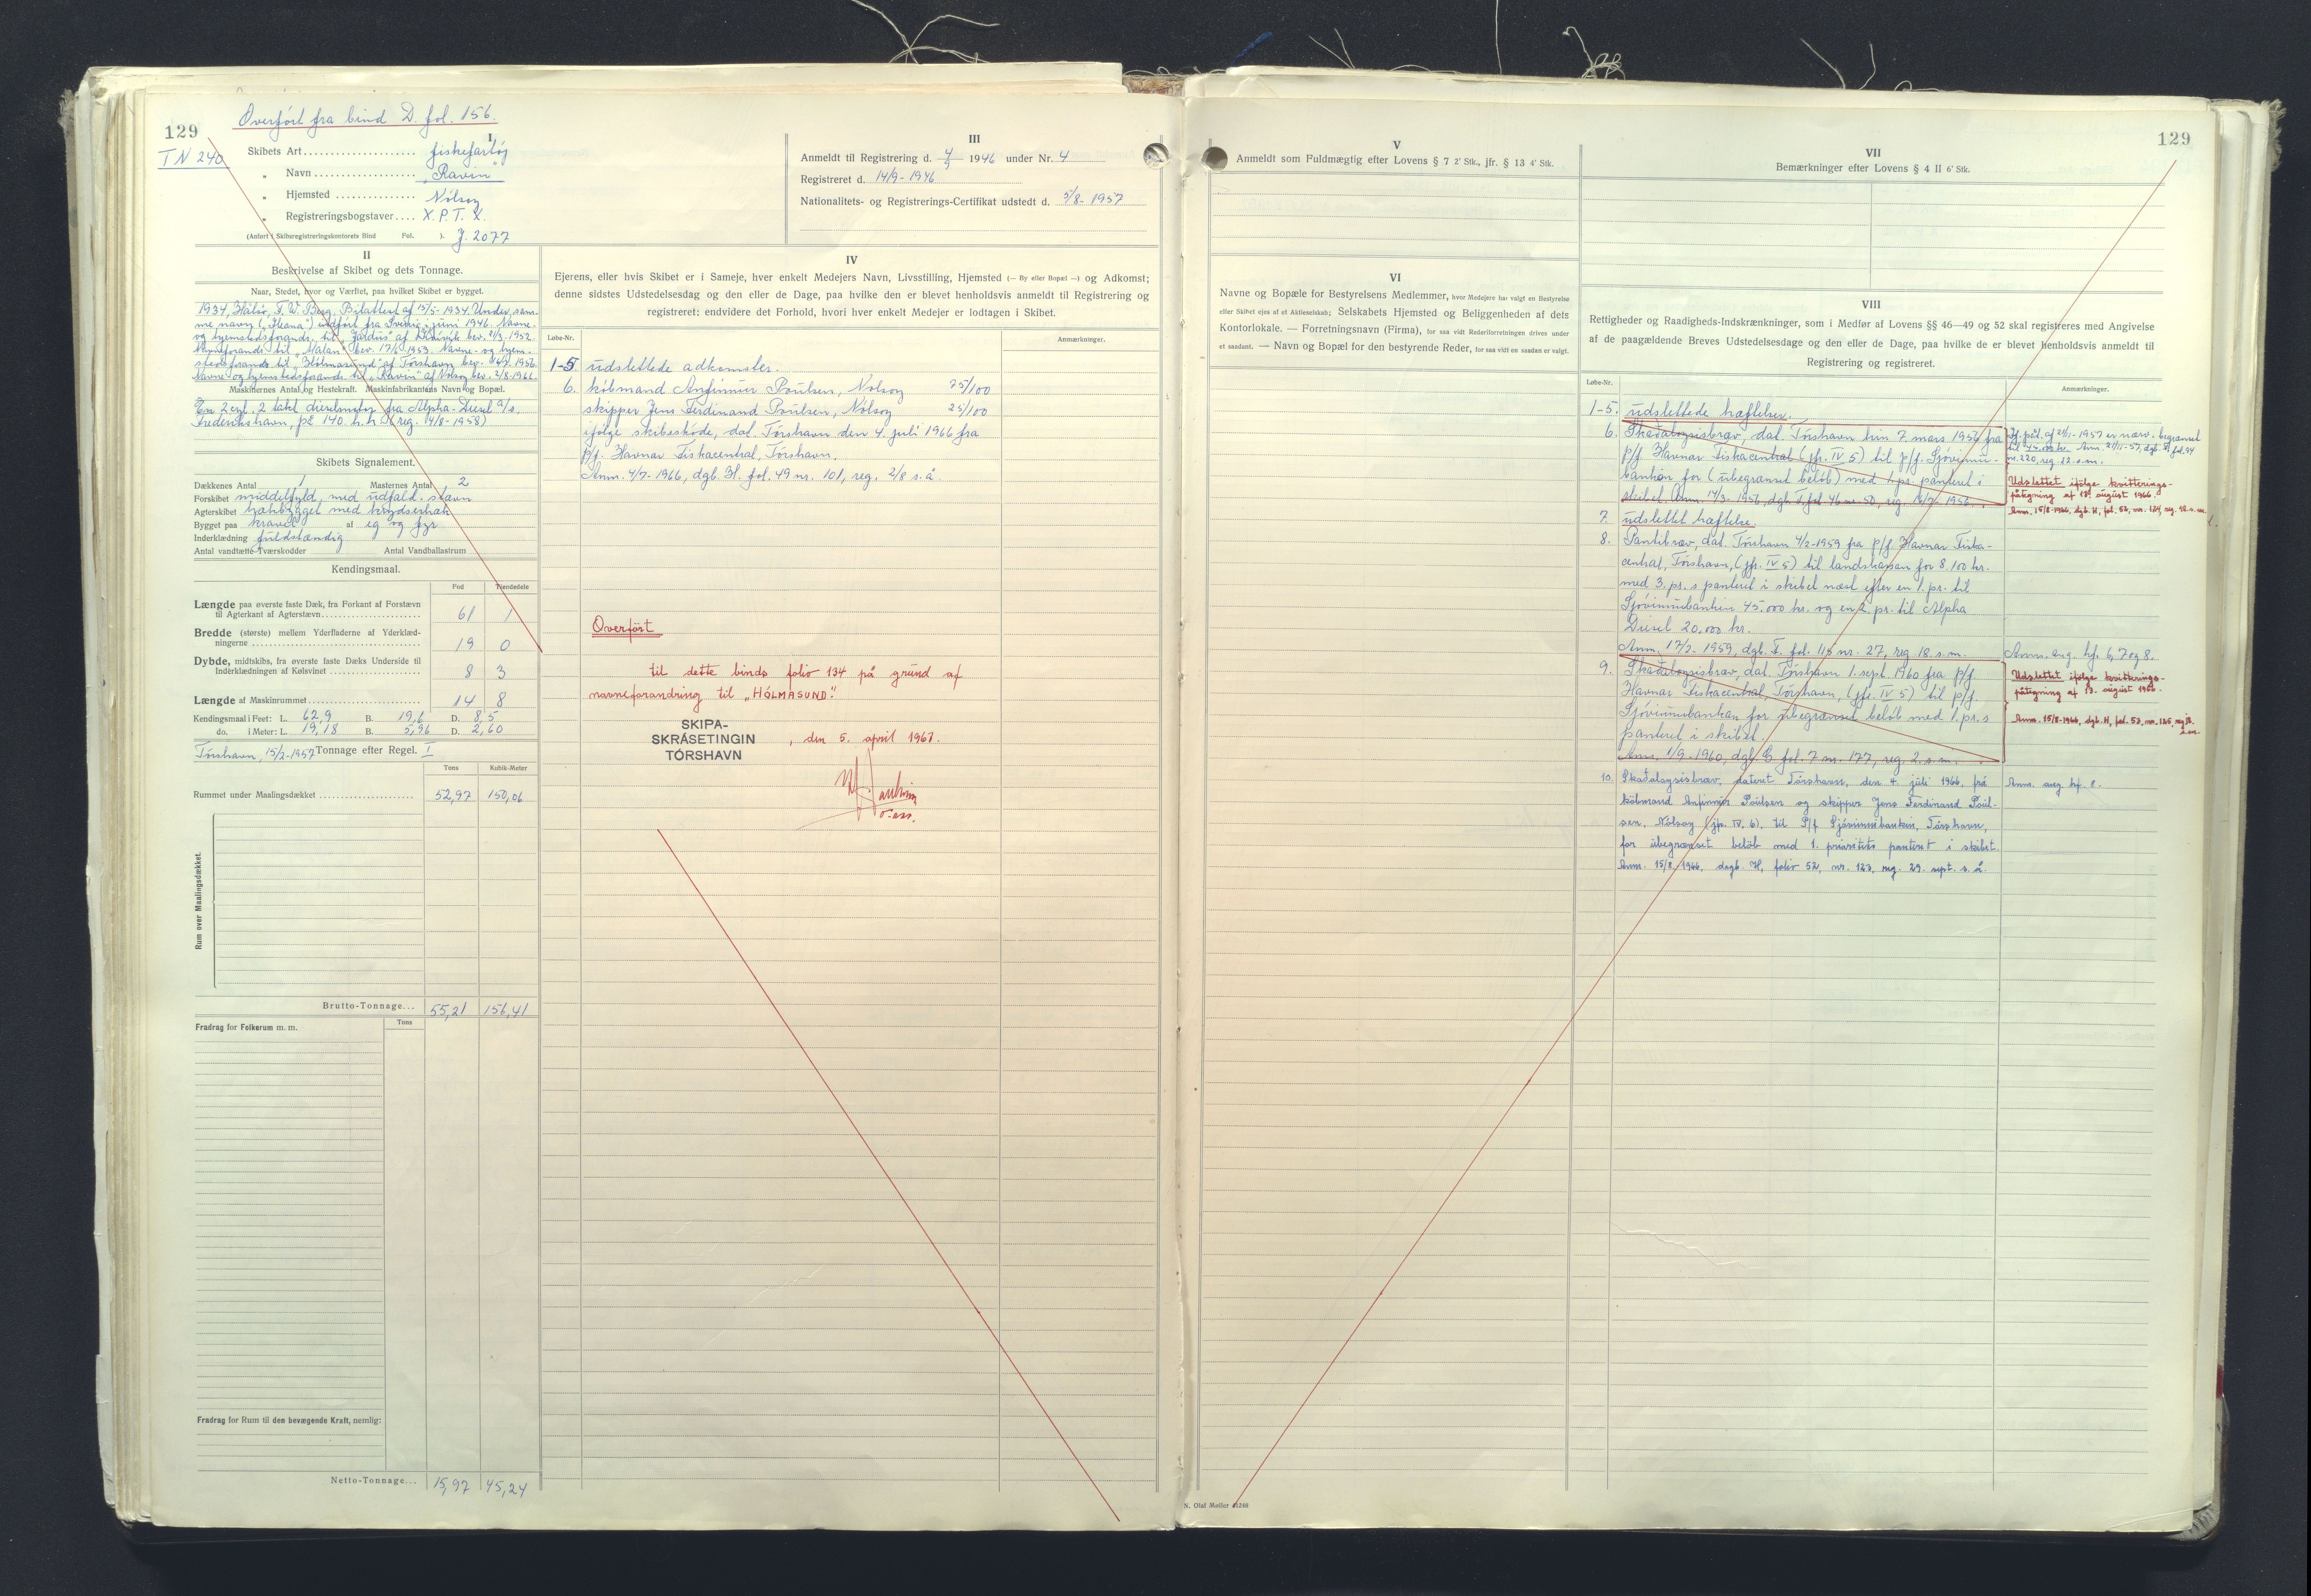 129
Overfört fra bind D. fol. 156.
TN 240
I
Skibets Art fiskefartöj
„ Navn „Ravin“
„ Hjemsted Nólsoy
„ Registreringsbogstaver X.P.T.X.
(Anført i Skibsregistreringskontorets Bind Fol. ). J. 2077
III
Anmeldt til Registrering d. 4/9 1946 under Nr. 4
Registreret d. 14/9-1946
Nationalitets- og Registrerings-Certifikat udstedt d. 5/8-1957
II
Beskrivelse af Skibet og dets Tonnage.
Naar, Stedet, hvor og Værftet, paa hvilket Skibet er bygget.
1934, Hälsö, F. W. Berg. Bilattest af 15/5-1934. Under sam-
me navn („Ileana“) indfört fra Sverig i juni 1946. Navne-
og hjemstedsforandr. til „ af bev. 21/3-1952.
Navneforandr. til „Matan“ bev. 17/ 1953. Navne- og hjem-
stedsforandr. til „Hólmasund“ af Tórshavn bev. 1956.
Navne- og hjemstedsforandr. til „Ravin“ af Nólsoy bev. 2/8-1966.
Maskinernes Antal og Hestekraft. Maskinfabrikantens Navn og Bopæl.
En 2 cyl. 2 takt dieselmotor fra Alpha-Diesel a/s.
Frederikshavn, på 140 h.k. (reg. 14/8-1958)
Skibets Signalement.
Dækkenes Antal 1 Masternes Antal 2
Forskibet middelfyld, med udfald. stavn
Agterskibet hækbygget med krydserhæk
Bygget paa kravel af eg og fyr
Inderklædning fuldstændig
Antal vandtætte Tværskodder Antal Vandballastrum
Kendingsmaal.
Fod Tiendedele
Længde paa øverste faste Dæk, fra Forkant af Forstævn
til Agterkant af Agterstævn 61 1
Bredde (største) mellem Yderfladerne af Yderklæd-
ningerne 19 0
Dybde, midtskibs, fra øverste faste Dæks Underside til
Inderklædningen af Kølsvinet 8 3
Længde af Maskinrummet 14 8
Kendingsmaal i Feet: L. 62,9 B. 19,6 D. 8,5
do. i Meter: L. 19,18 B. 5,96 D. 2,60
Tórshavn, 15/2-1957 Tonnage efter Regel. I
Tons Kubik-Meter
Rummet under Maalingsdækket 52,97 150,06
Rum over Maalingsdækket.
Brutto-Tonnage... 55,21 156,41
Fradrag for Folkerum m. m. Tons
Fradrag for Rum til den bevægende Kraft, nemlig:
Netto-Tonnage... 15,97 45,24
IV
Ejerens, eller hvis Skibet er i Sameje, hver enkelt Medejers Navn, Livsstilling, Hjemsted (— By eller Bopæl —) og Adkomst;
denne sidstes Udstedelsesdag og den eller de Dage, paa hvilke den er blevet henholdsvis anmeldt til Registrering og
registreret; endvidere det Forhold, hvori hver enkelt Medejer er lodtagen i Skibet.
Løbe-Nr. Anmærkninger.
1-5. udslettede adkomster.
6. köbmand Anfinnur Poulsen, Nolsoy 75/100
skipper Jens Ferdinand Poulsen, Nólsoy 25/100
ifölge skibsskøde, dat. Tórshavn den 4. juli 1966 fra
p/f. Havnar Fiskacentral, Tórshavn.
Anm. 4/7-1966, dgb. H. fol. 49 nr. 101, reg. 2/8 s. å.
Overfört
til dette binds folio 134 på grund af
navneforandring til „HÓLMASUND“.
SKIPA-
SKRÁSETINGIN
TÓRSHAVN
, den 5. april 1967.
129
V
Anmeldt som Fuldmægtig efter Lovens § 7 2' Stk., jfr. § 13 4' Stk.
VI
Navne og Bopæle for Bestyrelsens Medlemmer, hvor Medejere har valgt en Bestyrelse
eller Skibet ejes af et Aktieselskab; Selskabets Hjemsted og Beliggenheden af dets
Kontorlokale. — Forretningsnavn (Firma), for saa vidt Rederiforretningen drives under
et saadant. — Navn og Bopæl for den bestyrende Reder, for saa vidt en saadan er valgt.
VII
Bemærkninger efter Lovens § 4 II 6' Stk.
VIII
Rettigheder og Raadigheds-Indskrænkninger, som i Medfør af Lovens §§ 46—49 og 52 skal registreres med Angivelse
af de paagældende Breves Udstedelsesdage og den eller de Dage, paa hvilke de er blevet henholdsvis anmeldt til
Registrering og registreret.
Løbe-Nr. Anmærkninger.
1-5. udslettede hæftelser.
6. Skaðaloysisbræv, dat. Tórshavn hin 7. mars 1956 fra
p/f Havnar Fiskacentral (jfr. IV 5) til p/f. Sjóvinnu-
bankan for (ubegrænset beløb) med 1. pr. panteret i
skibet. Anm. 14/3-1956, dgb. F. fol. 46 nr. 50, reg. 1956.
If. påt. af 21/11-1957 er nærv. begrænset
til 45.000 kr. Anm. 21/11-57, dgb. F, fol. 94
nr. 220, reg. 22. s. m.
Udslettet ifölge kvitterings-
påtegning af 13. august 1966.
Anm. 15/8-1966, dgb. H, fol. 52, nr. 124, reg. 18. s. m.
7. udslettet hæftelse.
8. Pantibræv, dat. Tórshavn 4/2-1959 fra p/f. Havnar Fiska-
central, Tórshavn, (jfr. IV 5) til landskassan for 8.100 kr.
med 3. pr. s panteret i skibet næst efter en 1. pr. til
Sjóvinnubankin 45.000 kr. og en 2. pr. til Alpha
Diesel 20.000 kr.
Anm. 17/2-1959, dgb. F. fol. 115 nr. 27, reg. 18. s. m.
Anm. ang. hf. 6, 7 og 8.
9. Skaðaloysisbræv, dat. Tórshavn 1. sept. 1960 fra p/f.
Havnar Fiskacentral, Tórshavn, (jfr. IV 5) til p/f.
Sjóvinnubankan for ubegrænset beløb med 1. pr. s
panteret i skibet.
Anm. 1/9-1960, dgb. G fol. 7 nr. 177, reg. 2. s. m.
Udslettet ifölge kvitterings-
påtegning af 13. august 1966.
Anm. 15/8-1966, dgb. H, fol. 53, nr. 125, reg. 18.
s. m.
10. Skaðaloysisbræv, dateret Tórshavn, den 4. júli 1966, frá
köbmand Anfinnur Poulsen og skipper Jens Ferdinand Poul-
sen, Nólsoy (jfr. IV. 6), til P/f Sjóvinnubankin, Tórshavn,
for ubegrænset beløb med 1. prioritets panteret i skibet.
Anm. 15/8 1966, dagb. H, folio 52, nr. 123, reg. 29. sept. s. å.
Anm. ang. hf. 8.
N. Olaf Møller 41248